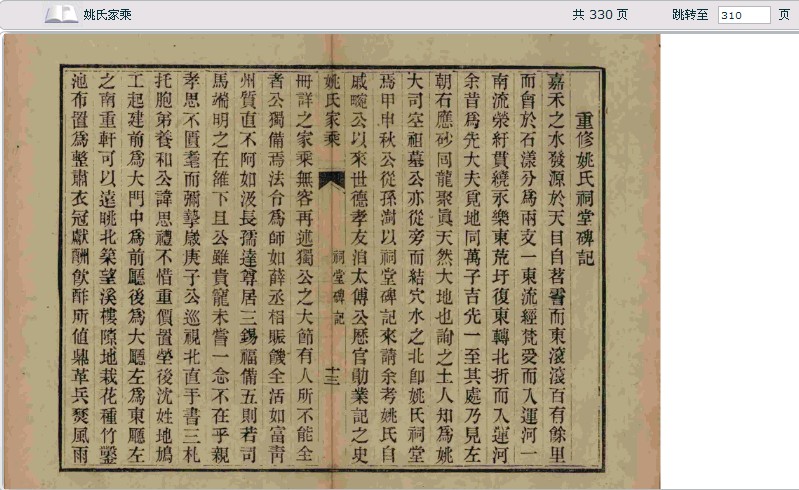 姚氏家乘
共 330 页
跳转至 310 页
重修姚氏祠堂碑記
嘉禾之水發源於天目自苕霅而東滾滾百有餘里
而會於石漾分為兩支一東流經梵愛而入運河一
南流縈紆貫繞永樂東荒圩復東轉北折而入運河
余昔為先大夫覓地同萬子吉先一至其處乃見左
朝右應砂囘龍聚眞天然大地也詢之土人知為姚
大司空祖墓公亦從旁而結穴水之北卽姚氏祠堂
焉甲申秋公從孫澍以祠堂碑記來請余考姚氏自
戚畹公以來世德孝友洎太傅公歷官勛業記之史
姚氏家乘
祠堂碑記
十三
冊詳之家乘無容再述獨公之大節有人所不能全
者公獨備焉法合為師如薛丞相賑饑全活如富靑
州質直不阿如汲長孺達尊居三錫福備五則若司
馬端明之在維下且公雖貴寵未嘗一念不在乎親
孝思不匱耄而彌摯歲庚子公巡視北直手書三札
托胞弟養和公諱思禮不惜重價置塋後沈姓地鳩
工起建前為大門中為前廳後為大廳左為東廳左
之南重軒可以遠眺北築望溪樓隙地栽花種竹鑿
池布置為整肅衣冠獻酬飮酢所值鼎革兵燹風雨